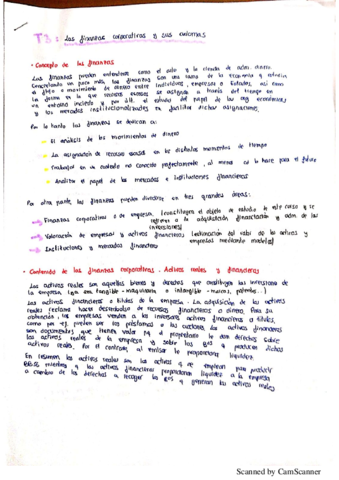 T3: Las finanzas corporativas y sus entornos
· Concepto de las finanzas
Las finanzas pueden entenderse como el arte y la ciencia de adm. dinero.
Concretando un poco más, las finanzas son una rama de la economía q estudia
el movimiento de dinero entre individuos, empresas o Estados, así como
la forma en la que recursos escasos se asignan a través del tiempo en
un entorno incierto y por
y los mercados institucionalizados en facilitar dichas asignaciones.
Por lo tanto las finanzas se dedican a:
→ El análisis de los movimientos de dinero
→ La asignación de recursos escasos en los distintos momentos de tiempo
→ Trabajar en un entorno no conocido perfectamente, al menos en lo hace para el futuro
→ Analiza el papel de los mercados e instituciones financieros
Por otra parte, las finanzas pueden dividirse en tres grandes áreas:
→ Finanzas corporativas o de empresa (constituyen el objeto de estudio de este curso y se
refieren a la adquisición, financiación y adm. de las
inversiones)
→ Valoración de empresas y activos financieros (estimación del valor de los activos y
empresas mediante modelos)
→ Instituciones y mercados financieros
· Contenido de las finanzas corporativas. Activos reales y financieros
Los activos reales son aquellos bienes y derechos que constituyen las inversiones de
la empresa, sea tangible - maquinaria o intangible - marcas, patentes...)
Los activos financieros o títulos de la empresa - La adquisición de los activos
reales reclama hacer desembolsos de recursos financieros o dinero. Para su
obtención, las empresas venden a los inversores activos financieros o títulos,
como por ej. pueden ser los préstamos o las acciones. Los activos financieros
son documentos que tienen valor pq al propietario le dan derechos sobre
activos reales de la empresa y sobre los q producen dichos
activos reales. Por el contrario, al emisor le proporciona liquidez
En resumen, los activos reales son los activos q se emplean para producir
mientras q los activos financieros proporcionan liquidez a la empresa
a cambio de los derechos a recoger los q generan los activos reales
Scanned by CamScanner